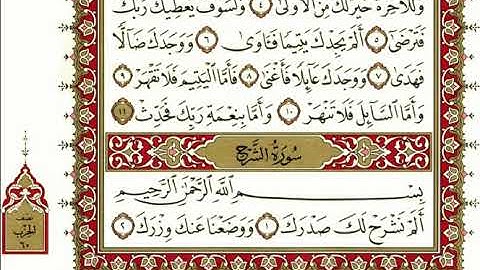 وَلَلْآخِرَةُ خَيْرٌ لَّكَ مِنَ الْأُولَىٰ ٤ وَلَسَوْفَ يُعْطِيكَ رَبُّكَ
فَتَرْضَىٰ ٥ أَلَمْ يَجِدْكَ يَتِيمًا فَآوَىٰ ٦ وَوَجَدَكَ ضَالًّا
فَهَدَىٰ ٧ وَوَجَدَكَ عَائِلًا فَأَغْنَىٰ ٨ فَأَمَّا الْيَتِيمَ فَلَا تَقْهَرْ ٩
وَأَمَّا السَّائِلَ فَلَا تَنْهَرْ ١٠ وَأَمَّا بِنِعْمَةِ رَبِّكَ فَحَدِّثْ ١١
سُورَةُ الشَّرْحِ
بِسْمِ اللَّهِ الرَّحْمَٰنِ الرَّحِيمِ
أَلَمْ نَشْرَحْ لَكَ صَدْرَكَ ١ وَوَضَعْنَا عَنكَ وِزْرَكَ ٢
نصف
الحزب
٦٠